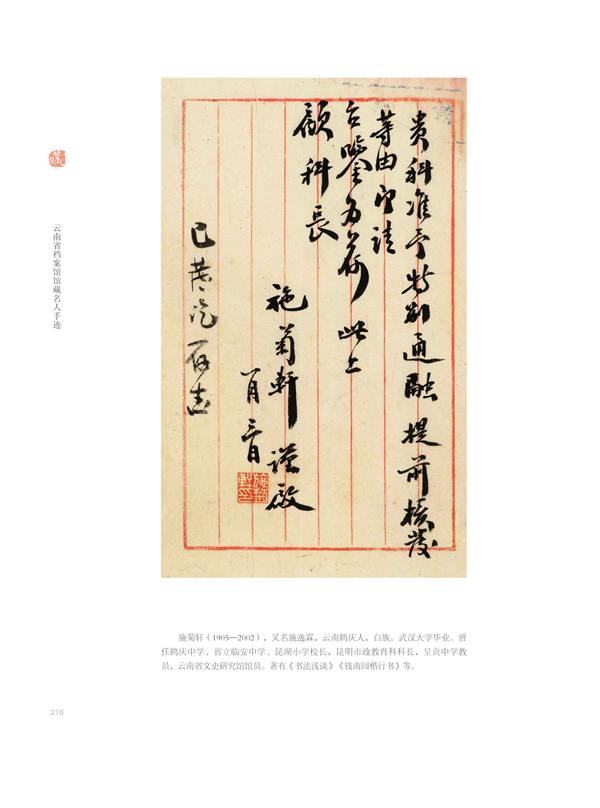 贵科准予特别通融提前核发
等由即请
台鉴为荷此上
顾科长
施菊轩谨启
一月三日
施菊轩印
云南省档案馆馆藏名人手迹
施菊轩（1905—2002），又名施逸霖，云南鹤庆人，白族。武汉大学毕业。曾
任鹤庆中学、省立临安中学、昆湖小学校长，昆明市政教育科科长，呈贡中学教
员，云南省文史研究馆馆员。著有《书法浅谈》《钱南园楷行书》等。
216